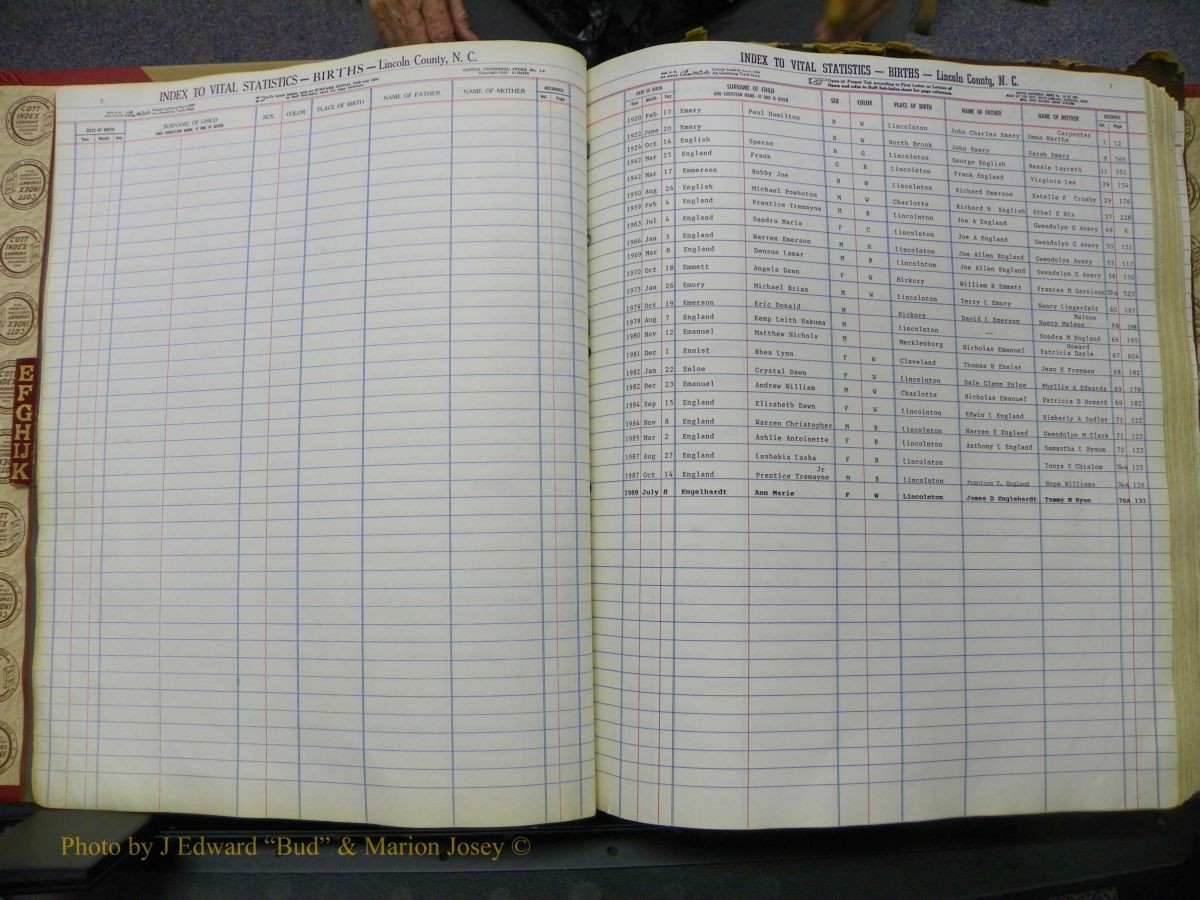 INDEX TO VITAL STATISTICS — BIRTHS — Lincoln County, N. C.
COTTCO UNIVERSAL INDEX No. 1-6
DATE OF BIRTH
Year Month Day
SURNAME OF CHILD
AND CHRISTIAN NAME, IF ONE IS GIVEN
SEX COLOR PLACE OF BIRTH NAME OF FATHER NAME OF MOTHER
RECORDED
Vol. Page
COTT INDEX COMPANY
E F G H I J K
INDEX TO VITAL STATISTICS — BIRTHS — Lincoln County, N. C.
DATE OF BIRTH
Year Month Day
SURNAME OF CHILD
AND CHRISTIAN NAME, IF ONE IS GIVEN
SEX COLOR PLACE OF BIRTH NAME OF FATHER NAME OF MOTHER
RECORDED
Vol. Page
1920 Feb 17 Emery Paul Hamilton B W Lincolnton John Charles Emery Carpenter Emma Martha 7 12
1922 June 20 Emery B W North Brook John Emery Sarah Emery 9 565
1924 Oct 14 English Speras B G Lincolnton George English Bessie Layreth 11 551
1942 Mar 25 England Frank G B Lincolnton Frank England Virginia Lee 29 154
1942 Mar 17 Emmerson Bobby Joe B W Lincolnton Richard Emerson Estelle F Crosby 29 176
1950 Aug 24 English Michael Powhoton M W Charlotte Richard H English Ethel E Nix 37 228
1959 Feb 4 England Prentice Tremayne M B Lincolnton Joe A England Gwendolyn G Avery 46 6
1963 Jul 4 England Sandra Maria F C Lincolnton Joe A England Gwendolyn G Avery 50 151
1966 Jan 3 England Warren Emerson M N Lincolnton Joe Allen England Gwendolyn Avery 53 117
1969 Mar 8 England Denson Lamar M B Lincolnton Joe Allen England Gwendolyn G Avery 56 130
1970 Oct 18 Emmett Angela Dawn F W Hickory William R Emmett Frances M Garrison 57-A 523
1973 Jan 26 Emory Michael Brian M W Lincolnton Terry L Emory Nancy Lingerfelt 60 167
1979 Oct 19 Emerson Eric Donald M Hickory David L Emerson Malone Nancy Melena 66 198
1979 Aug 7 England Kemp Leith Nakuma M Lincolnton -- Sondra M England 66 195
1980 Nov 12 Emanuel Matthew Nichols M Mecklenburg Nicholas Emanuel Howard Patricia Dayle 67 604
1981 Dec 1 Ennist Rhea Lynn F W Cleveland Thomas R Ennist Jean E Freeman 68 182
1982 Jan 22 Enloe Crystal Dawn F W Lincolnton Dale Glenn Enloe Phyllis A Edwards 69 178
1982 Dec 23 Emanuel Andrew William M W Charlotte Nicholas Emanuel Patricia D Howard 69 182
1984 Sep 15 England Elizabeth Dawn F W Lincolnton Edwin L England Kimberly A Sadler 71 122
1984 Nov 8 England Warren Christopher M B Lincolnton Warren E England Gwendolyn M Clark 71 123
1985 Mar 2 England Ashlie Antoinette F B Lincolnton Anthony L England Samantha L Bynum 72 123
1987 Aug 27 England Lashekia Lasha F B Lincolnton Tonya Y Chislom 74-A 125
1987 Oct 14 England Prentice Tremayne Jr M B Lincolnton Prentice T. England Hope Williams 74-A 126
1989 July 8 Engelhardt Ann Marie F W Lincolnton James D Englehardt Tammy M Ryan 76A 131
Photo by J Edward “Bud” & Marion Josey ©